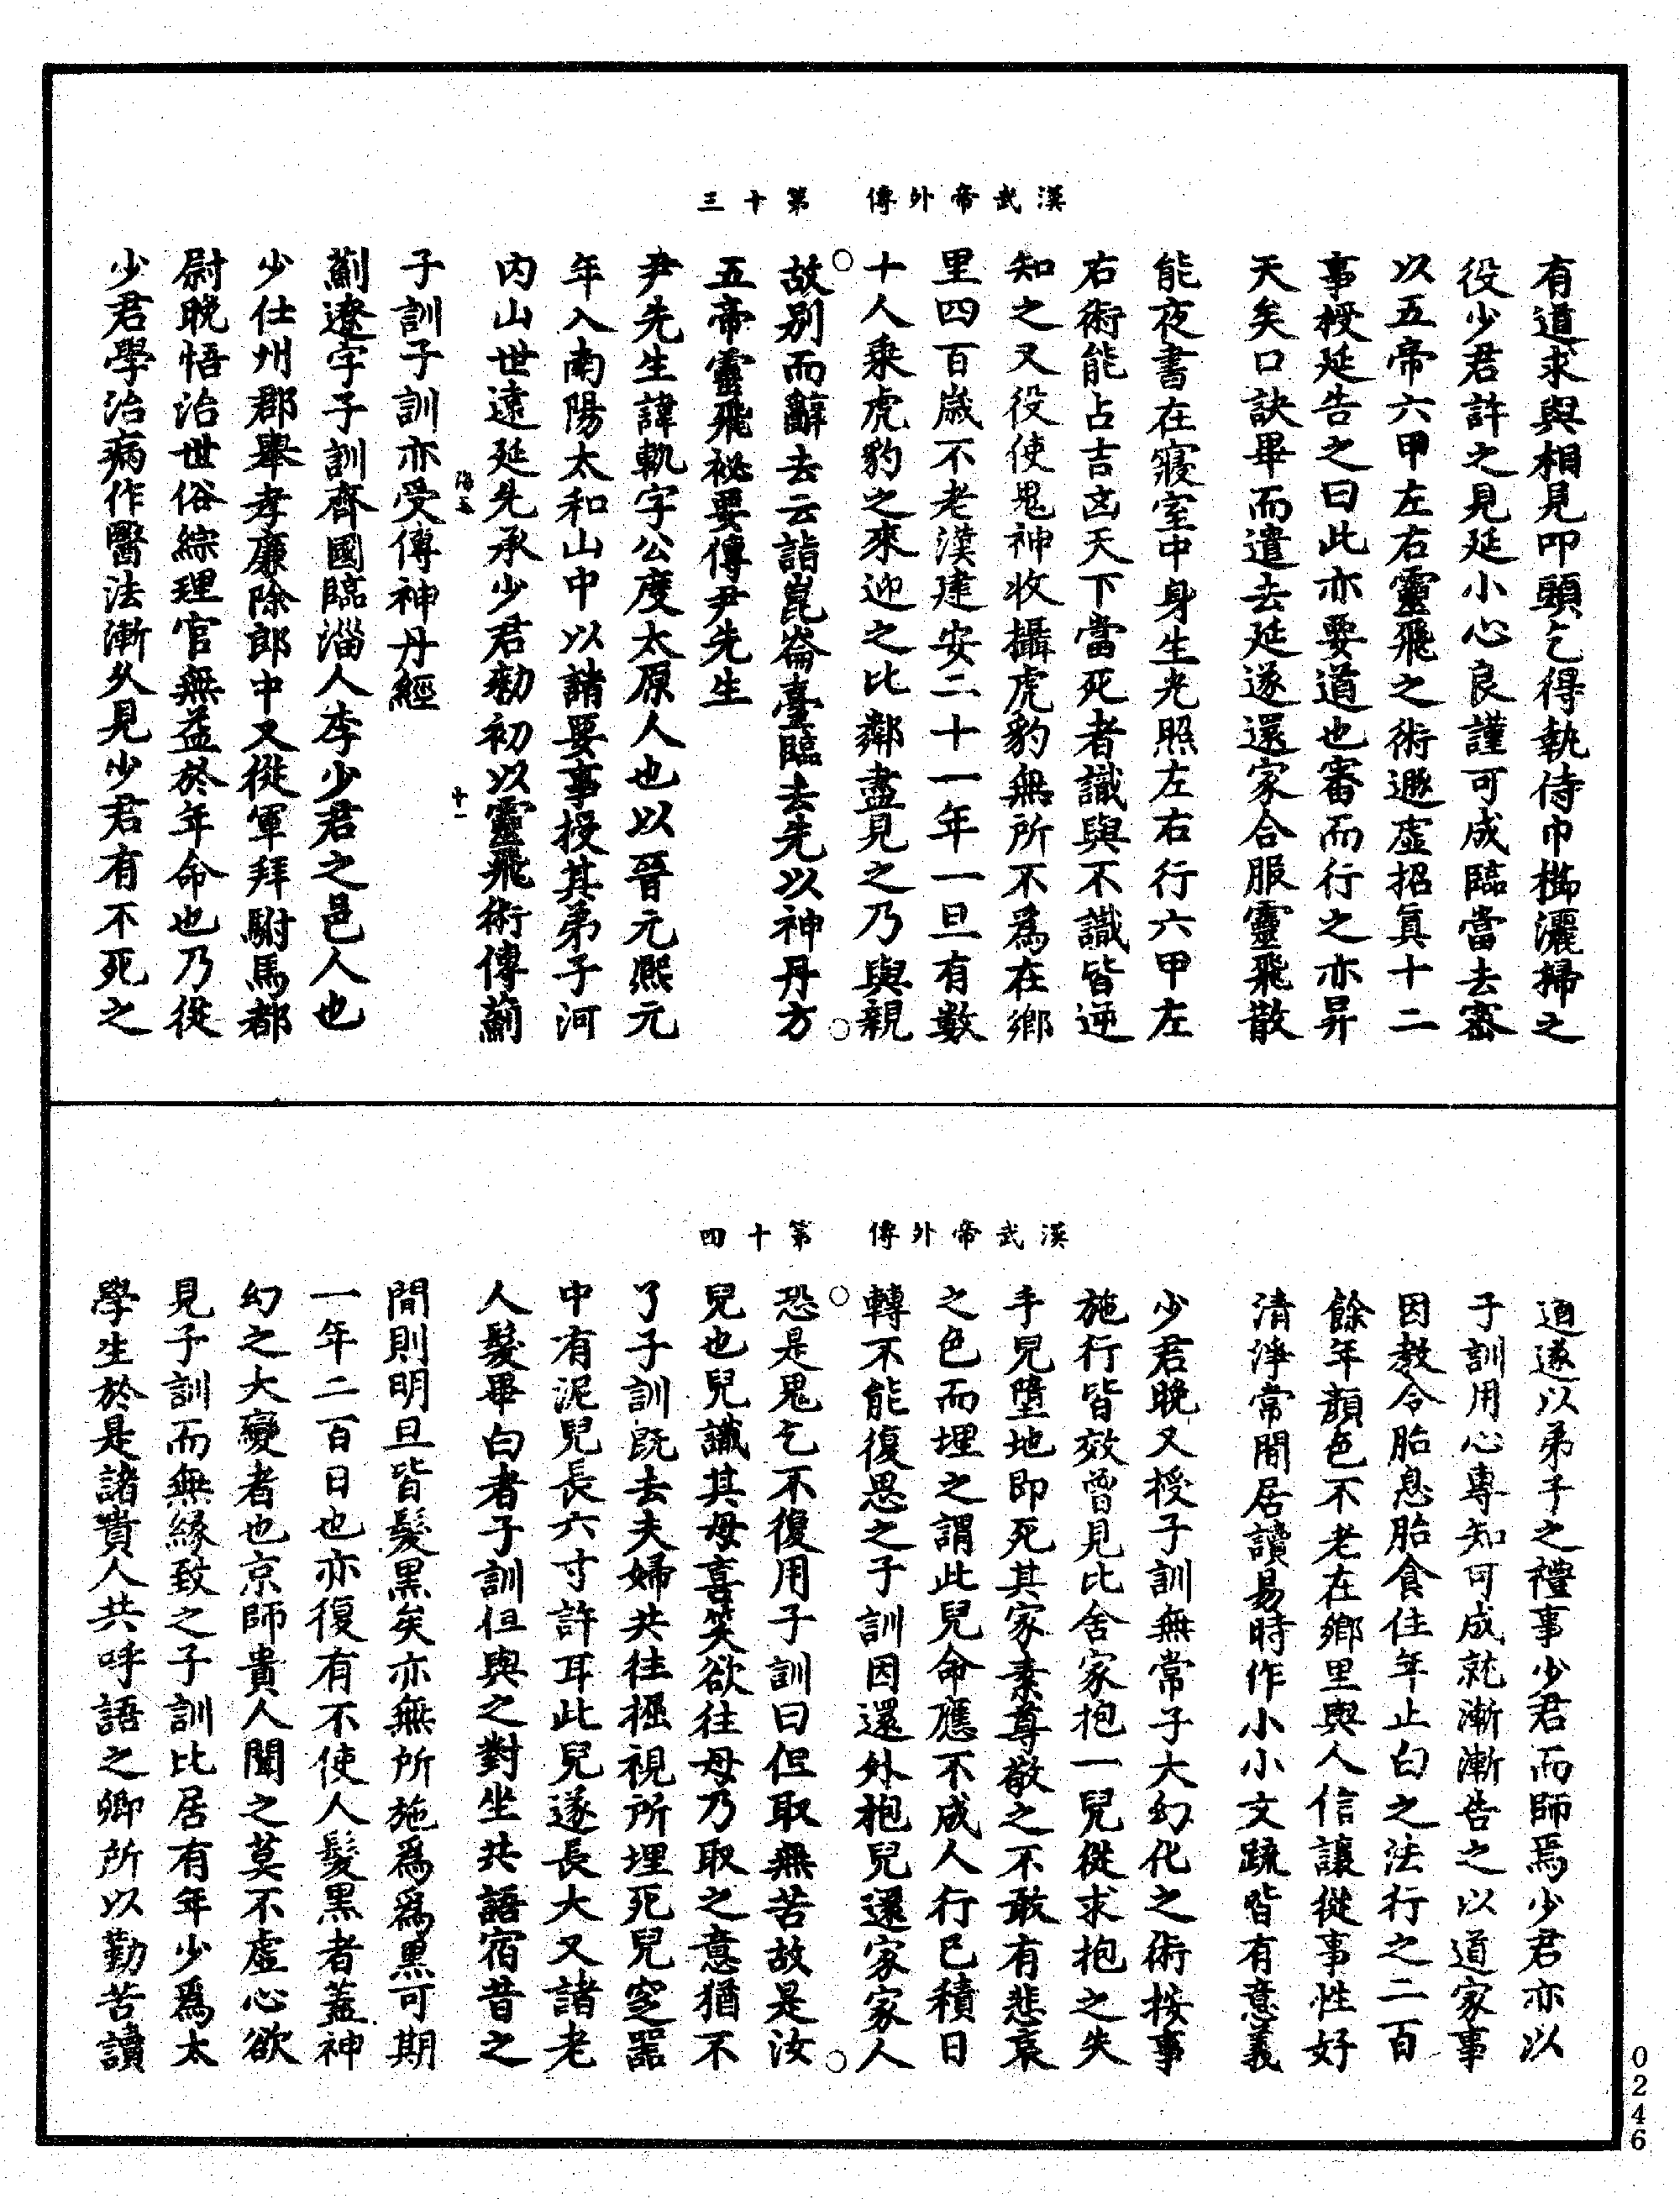 漢武帝外傳　第十三
有道求與相見叩頭乞得執侍巾櫛灑掃之
役少君許之見延小心良謹可成臨當去密
以五帝六甲左右靈飛之術遁虛招眞十二
事授延告之曰此亦要道也審而行之亦昇
天矣口訣畢而遣去延遂還家合服靈飛散
能夜書在寢室中身生光照左右行六甲左
右術能占吉凶天下當死者識與不識皆逆
知之又役使鬼神收攝虎豹無所不爲在鄉
里四百歲不老漢建安二十一年一旦有數
十人乘虎豹之來迎之比鄰盡見之乃與親
故別而辭去云詣崑崙臺臨去先以神丹方
五帝靈飛祕要傳尹先生
尹先生諱軌字公度太原人也以晉元熙元
年入南陽太和山中以諸要事授其弟子河
内山世遠延先承少君勑初以靈飛術傳薊
海五　十一
子訓子訓亦受傳神丹經
薊遼字子訓齊國臨淄人李少君之邑人也
少仕州郡舉孝廉除郎中又從軍拜駙馬都
尉晚悟治世俗綜理官無益於年命也乃從
少君學治病作醫法漸久見少君有不死之
漢武帝外傳　第十四
道遂以弟子之禮事少君而師焉少君亦以
子訓用心專知可成就漸漸告之以道家事
因教令胎息胎食住年止白之法行之二百
餘年顏色不老在鄉里與人信讓從事性好
清淨常閑居讀易時作小小文疏皆有意義
少君晚又授子訓無常子大幻化之術按事
施行皆效曾見比舍家抱一兒從求抱之失
手兒墮地即死其家素尊敬之不敢有悲哀
之色而埋之謂此兒命應不成人行已積日
轉不能復思之子訓因還外抱兒還家家人
恐是鬼乞不復用子訓曰但取無苦故是汝
兒也兒識其母喜笑欲往母乃取之意猶不
了子訓既去夫婦共往掘視所埋死兒空器
中有泥兒長六寸許耳此兒遂長大又諸老
人髮畢白者子訓但與之對坐共語宿昔之
間則明旦皆髮黑矣亦無所施爲爲黑可期
一年二百日也亦復有不使人髮黑者蓋神
幻之大變者也京師貴人聞之莫不虛心欲
見子訓而無緣致之子訓比居有年少爲太
學生於是諸貴人共呼語之卿所以勤苦讀
0246